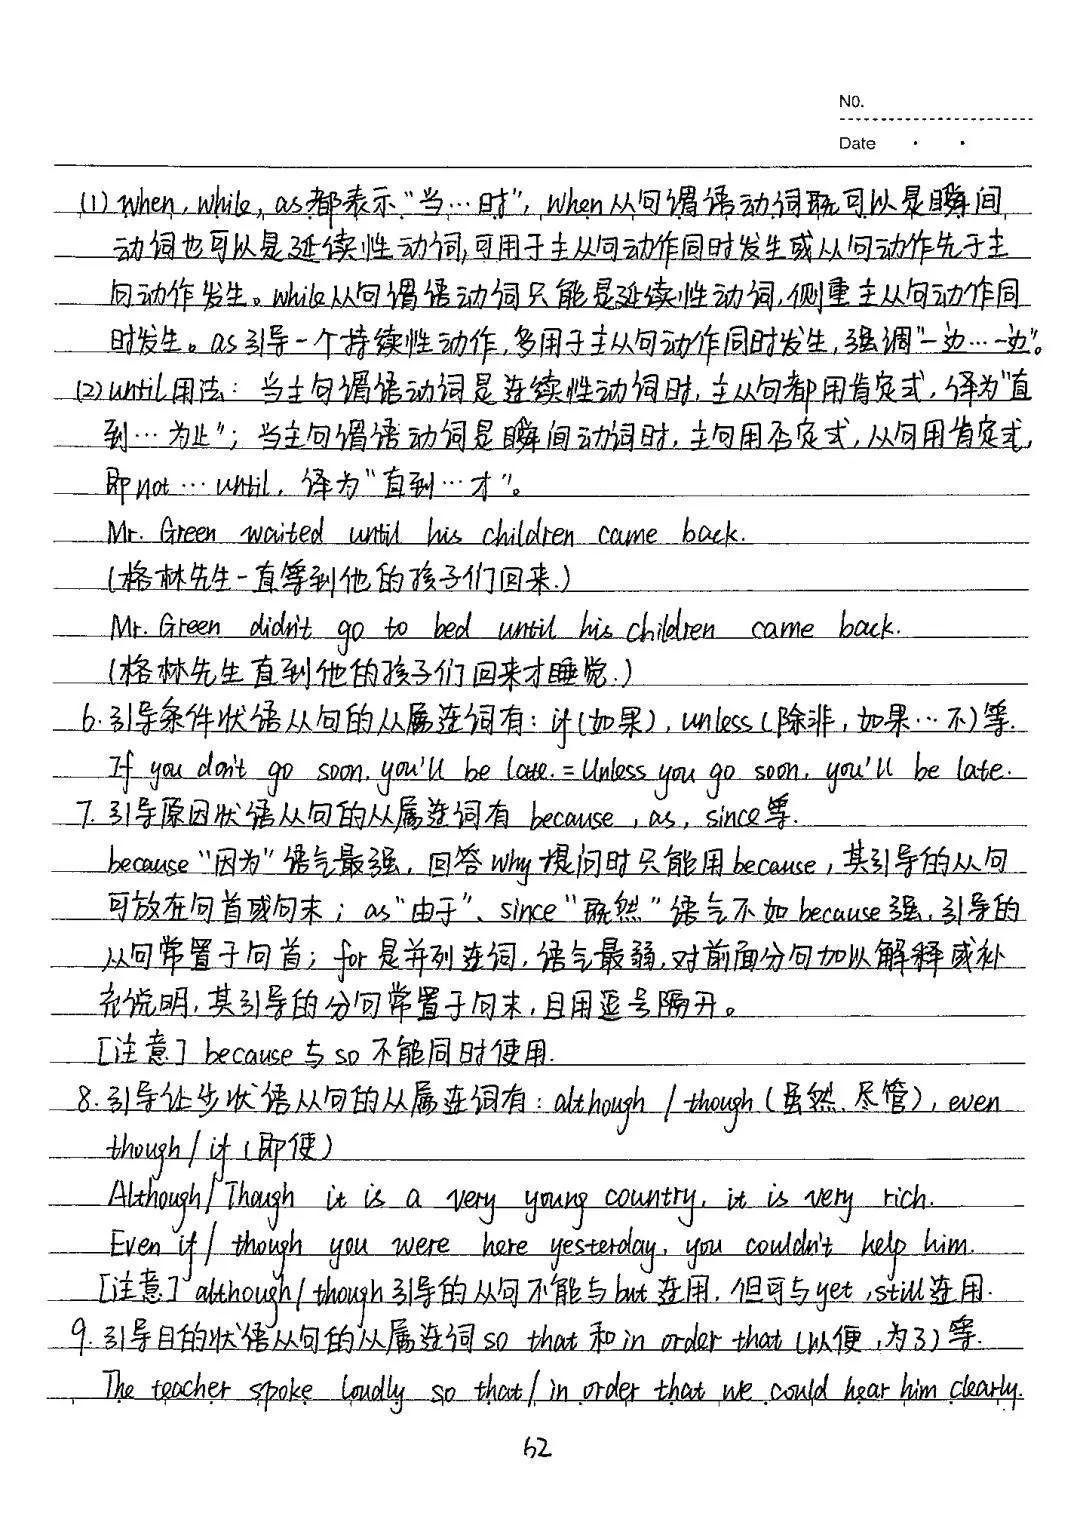 No.
Date · ·
(1) when, while, as都表示“当…时”, when从句谓语动词既可以是瞬间
动词也可以是延续性动词,可用于主从句动作同时发生或从句动作先于主
句动作发生。while从句谓语动词只能是延续性动词,侧重主从句动作同
时发生。as引导一个持续性动作,多用于主从句动作同时发生,强调“一边…一边”。
(2) until用法: 当主句谓语动词是连续性动词时,主从句都用肯定式,译为“直
到…为止”; 当主句谓语动词是瞬间动词时,主句用否定式,从句用肯定式,
即not…until, 译为“直到…才”。
Mr. Green waited until his children came back.
(格林先生一直等到他的孩子们回来.)
Mr. Green didn't go to bed until his children came back.
(格林先生直到他的孩子们回来才睡觉.)
6.引导条件状语从句的从属连词有: if(如果), unless(除非,如果…不)等.
If you don't go soon, you'll be late. = Unless you go soon, you'll be late.
7.引导原因状语从句的从属连词有 because, as, since等.
because“因为”语气最强, 回答why提问时只能用because, 其引导的从句
可放在句首或句末; as“由于”、since“既然”语气不如because强,引导的
从句常置于句首; for是并列连词,语气最弱,对前面分句加以解释或补
充说明,其引导的分句常置于句末,且用逗号隔开。
[注意] because与so不能同时使用.
8.引导让步状语从句的从属连词有: although / though (虽然、尽管), even
though / if (即使)
Although/Though it is a very young country, it is very rich.
Even if / though you were here yesterday, you couldn't help him.
[注意] although/though引导的从句不能与but连用, 但可与yet, still连用.
9.引导目的状语从句的从属连词so that 和 in order that (以便,为了)等.
The teacher spoke loudly so that/in order that we could hear him clearly.
62